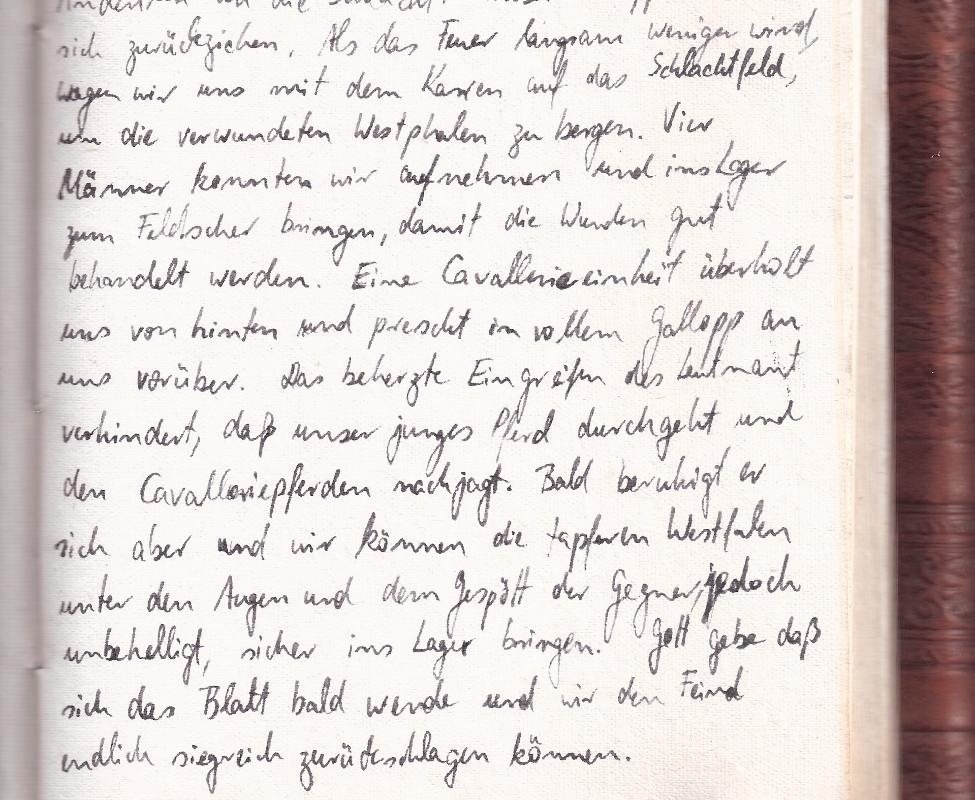 sich zurückziehen. Als das Feuer langsam weniger wird,
wagen wir uns mit dem Karren auf das Schlachtfeld,
um die verwundeten Westphalen zu bergen. Vier
Männer konnten wir aufnehmen und ins Lager
zum Feldscher bringen, damit die Wunden gut
behandelt werden. Eine Cavallerieeinheit überholt
uns von hinten und prescht in vollem Gallopp an
uns vorüber. Das beherzte Eingreifen des Leutnant
verhindert, daß unser junges Pferd durchgeht und
den Cavalleriepferden nachjagt. Bald beruhigt er
sich aber und wir können die tapferen Westfalen
unter den Augen und dem Gespött der Gegner, jedoch
unbehelligt, sicher ins Lager bringen. Gott gebe daß
sich das Blatt bald wende und wir den Feind
endlich siegreich zurückschlagen können.